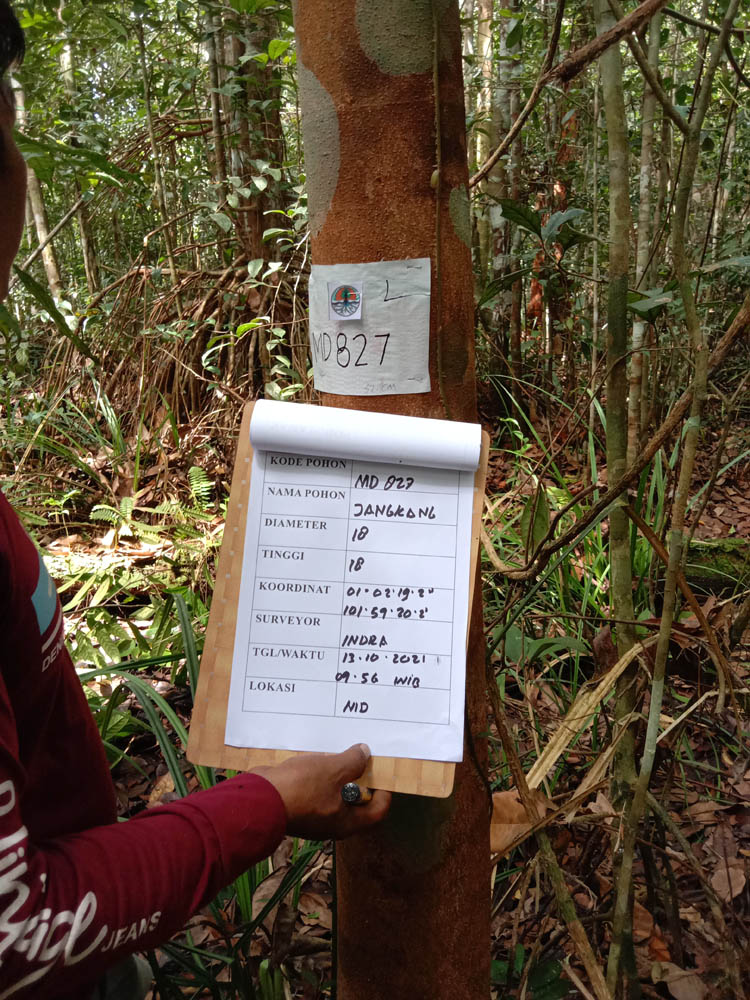 MD827
57 CM
KODE POHON MD 827
NAMA POHON JANGKANG
DIAMETER 18
TINGGI 18
KOORDINAT 01·02·19·2"
101·59·20·2'
SURVEYOR INDRA
TGL/WAKTU 13·10·2021
09·56 WIB
LOKASI MD
JEANS